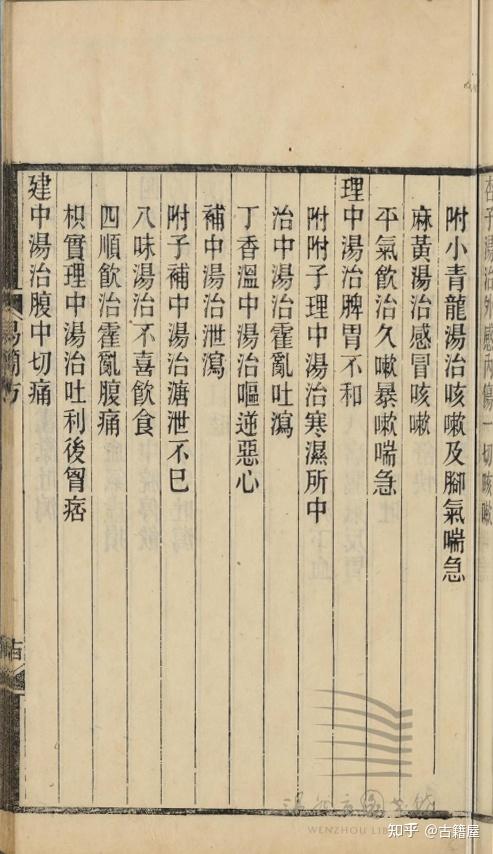 杏子湯治外感內傷一切咳嗽
附小青龍湯治咳嗽及腳氣喘急
麻黃湯治感冒咳嗽
平氣飲治久嗽暴嗽喘急
理中湯治脾胃不和
附附子理中湯治寒濕所中
治中湯治霍亂吐瀉
丁香溫中湯治嘔逆惡心
補中湯治泄瀉
附子補中湯治溏泄不巳
八味湯治不喜飲食
四順飲治霍亂腹痛
枳實理中湯治吐利後胷痞
建中湯治腹中切痛
易簡方
WENZHOU LI
知乎 @古籍屋